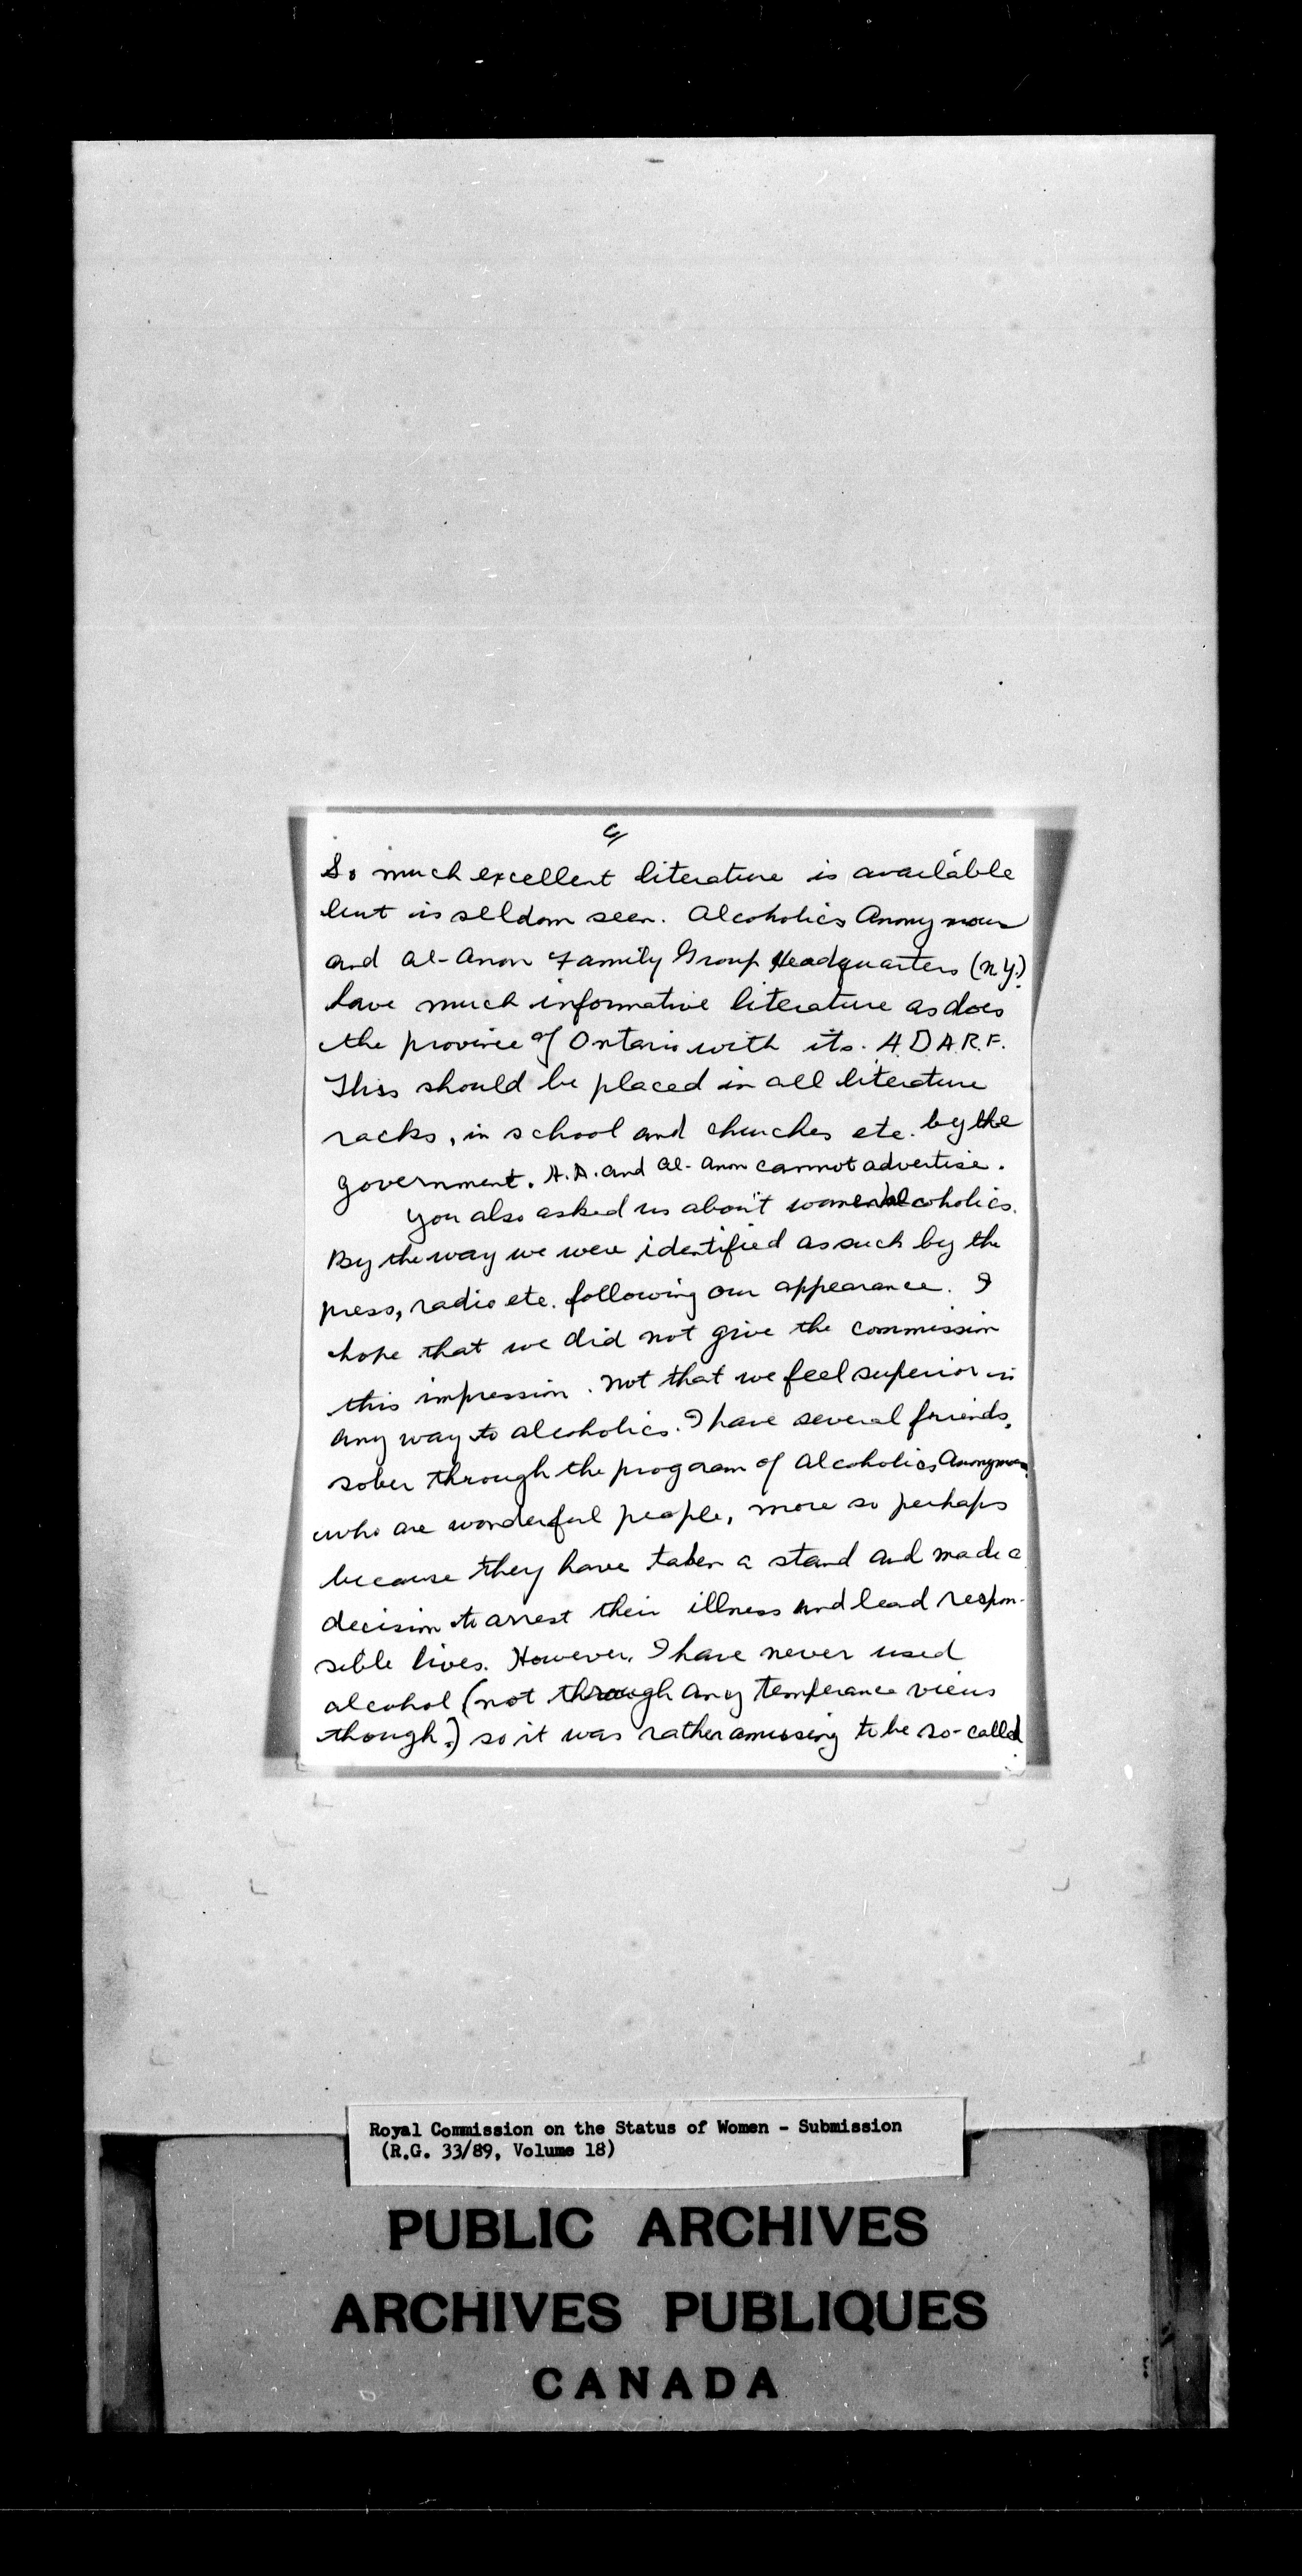 So much excellent literature is available
but is selldom seen. Alcoholics Anonymous
and Al-Anon Family Group Headquarters (N.Y.)
have much informative literature as does
the province of Ontario with its. A.D.A.R.F.
This should be placed in all literature
racks, in school and churches etc. by the
government. A.A. and Al-Anon cannot advertise.
You also asked us about women alcoholics.
By the way we were identified as such by the
press, radio etc. following our appearance. I
hope that we did not give the commission
this impression. Not that we feel superior in
any way to alcoholics. I have several friends,
sober through the program of Alcoholics Anonymous
who are wonderful people, more so perhaps
because they have taken a stand and made a
decision to arrest their illness and lead respon-
sible lives. However, I have never used
alcohol (not through any temperance views
though.) so it was rather amusing to be so-called
Royal Commission on the Status of Women - Submission
(R.G. 33/89, Volume 18)
PUBLIC ARCHIVES
ARCHIVES PUBLIQUES
CANADA